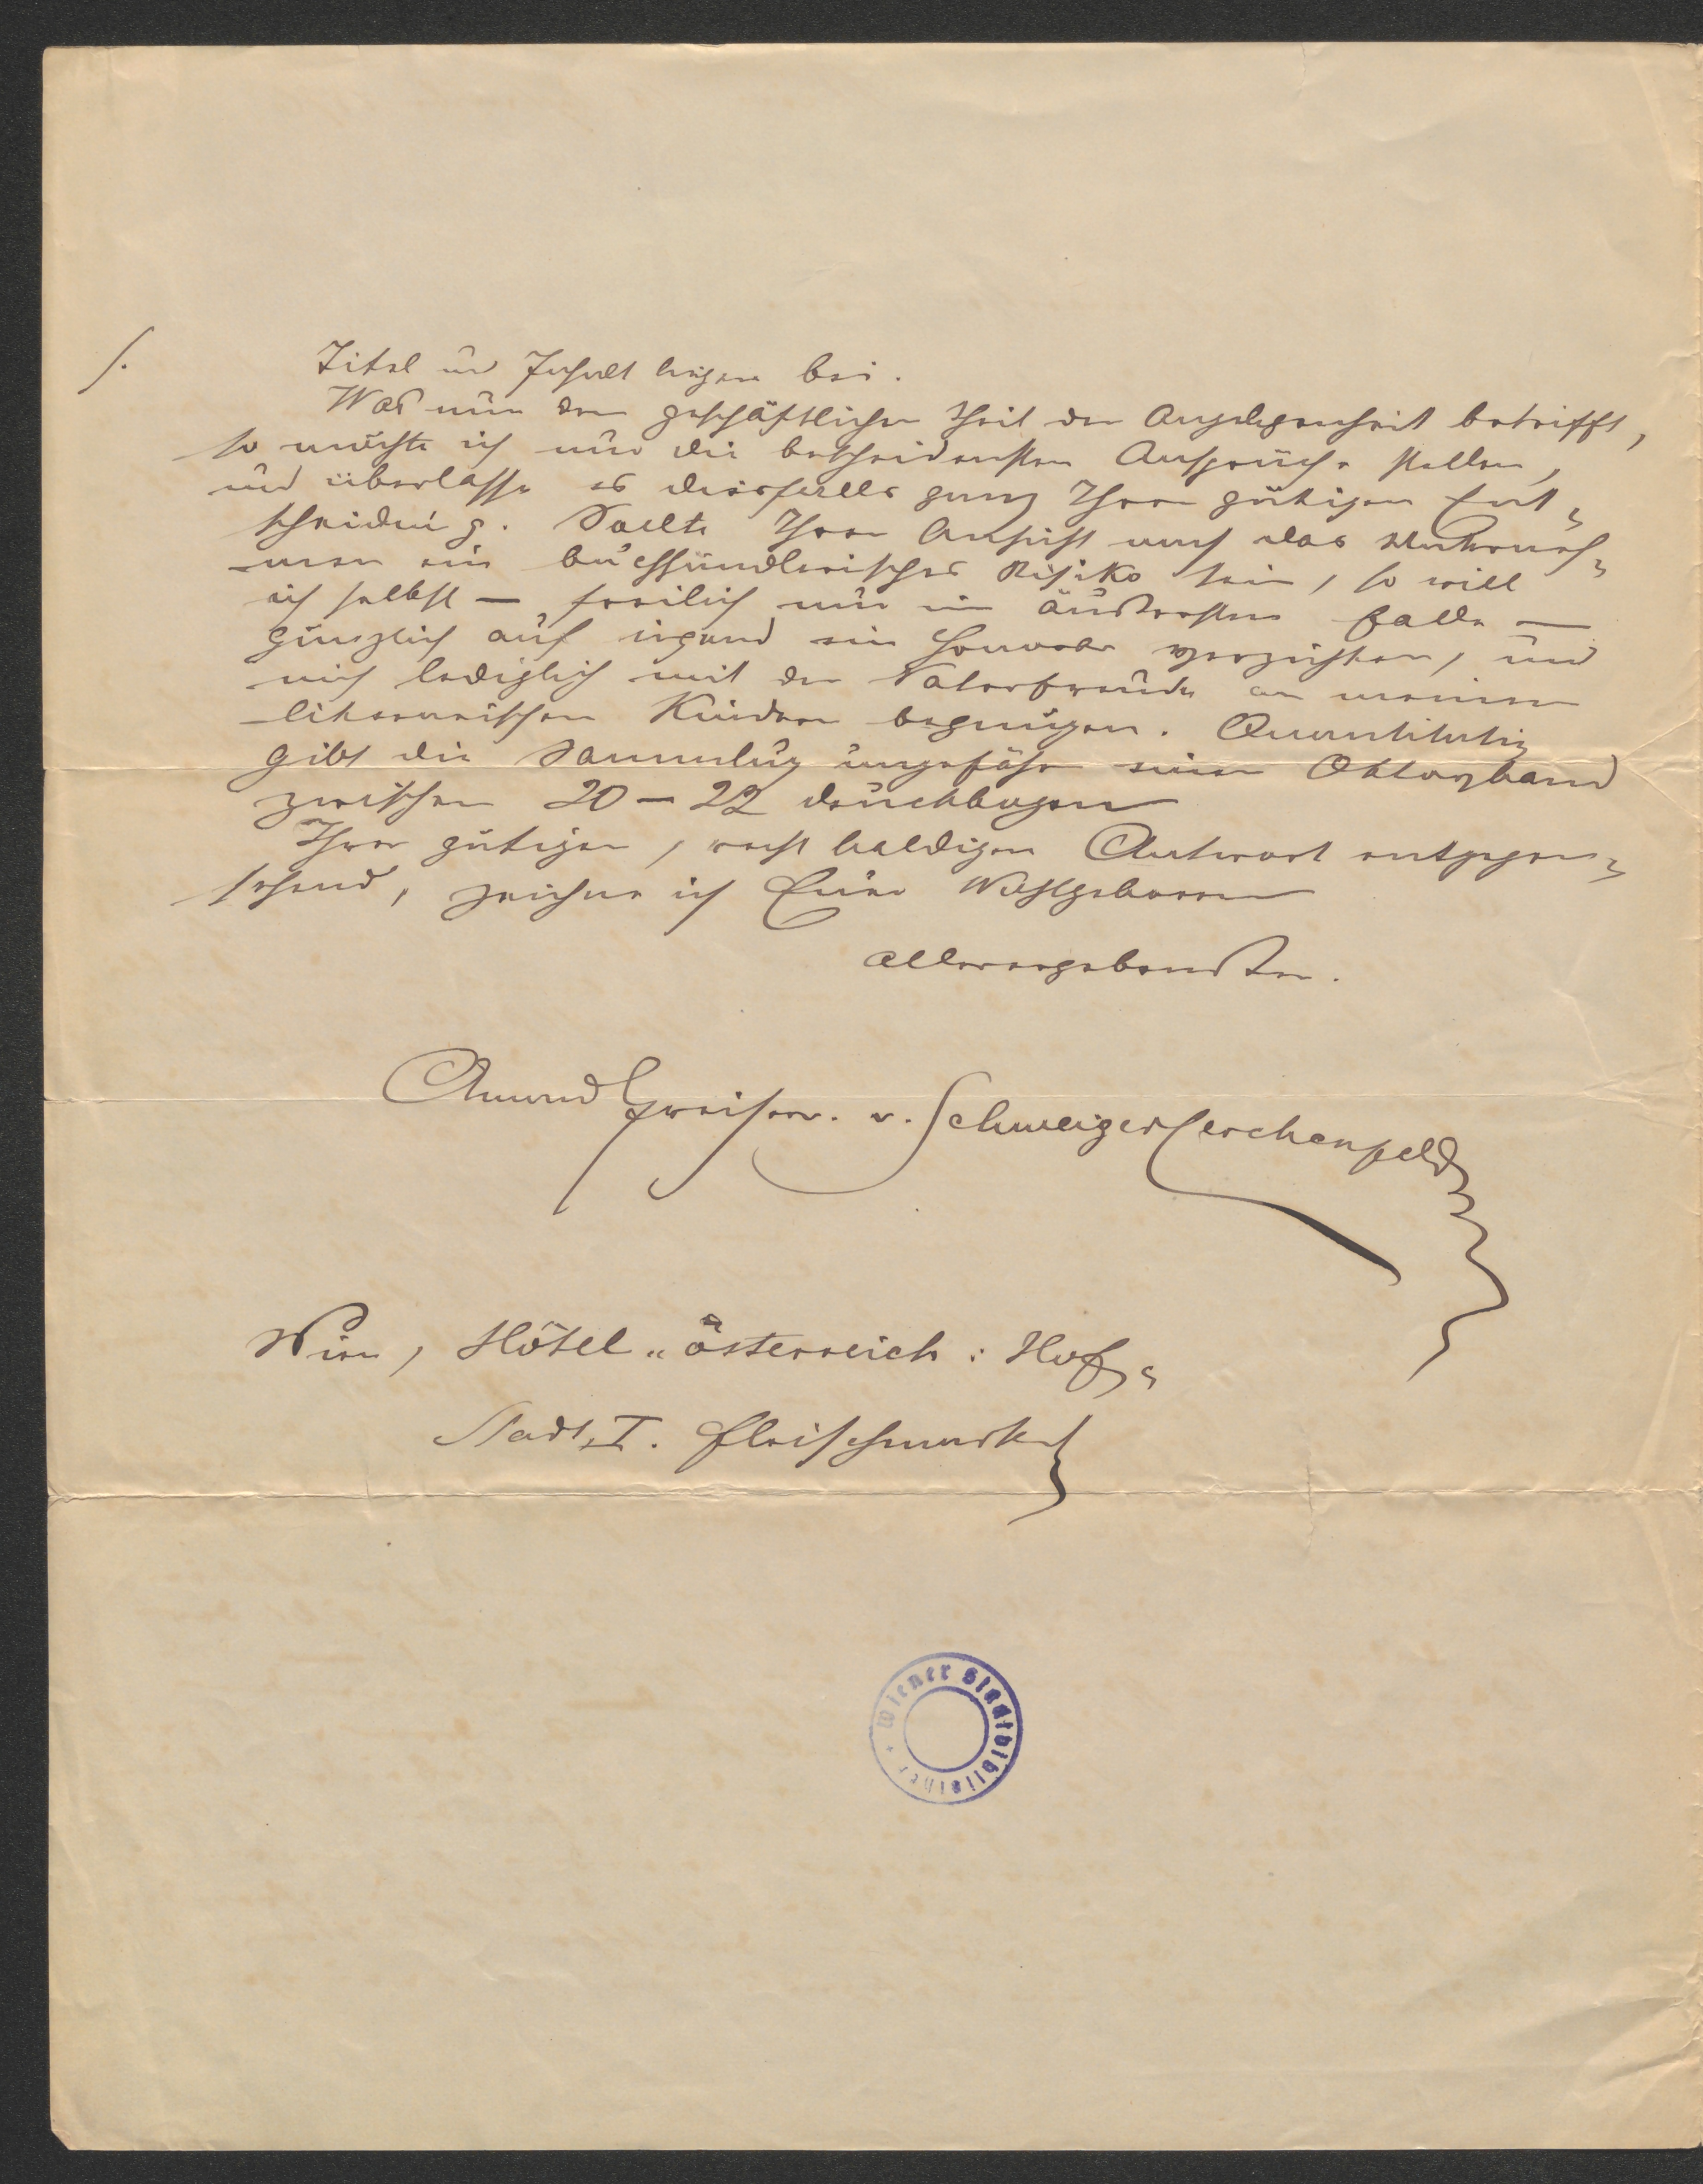 /.
Titel und Inhalt liegen bei.
Was nun den geschäftlichen Theil der Angelegenheit betrifft,
so möchte ich nur die bescheidensten Ansprüche stellen,
und überlasse es diesfalls ganz Ihrer gütigen Ent-
scheidung. Sollte Ihrer Ansicht nach das Unterneh-
men ein buchhändlerisches Risiko sein, so will
ich selbst — freilich nur im äußersten Falle —
gänzlich auf irgend ein Honorar verzichten, und
mich lediglich mit der Vaterfreude an meinen
literarischen Kindern begnügen. Quantitativ
gibt die Sammlung ungefähr einen Oktavband
zwischen 20 — 22 Druckbogen
Ihrer gütigen, recht baldigen Antwort entgegen-
sehend, zeichne ich Euer Wohlgeboren
allerergebenster.
Amand Freiherr. v. Schweiger Lerchenfeld
Wien, Hôtel „österreich: Hof"
Stadt, I. Fleischmarkt
Wiener Stadtbibliothek